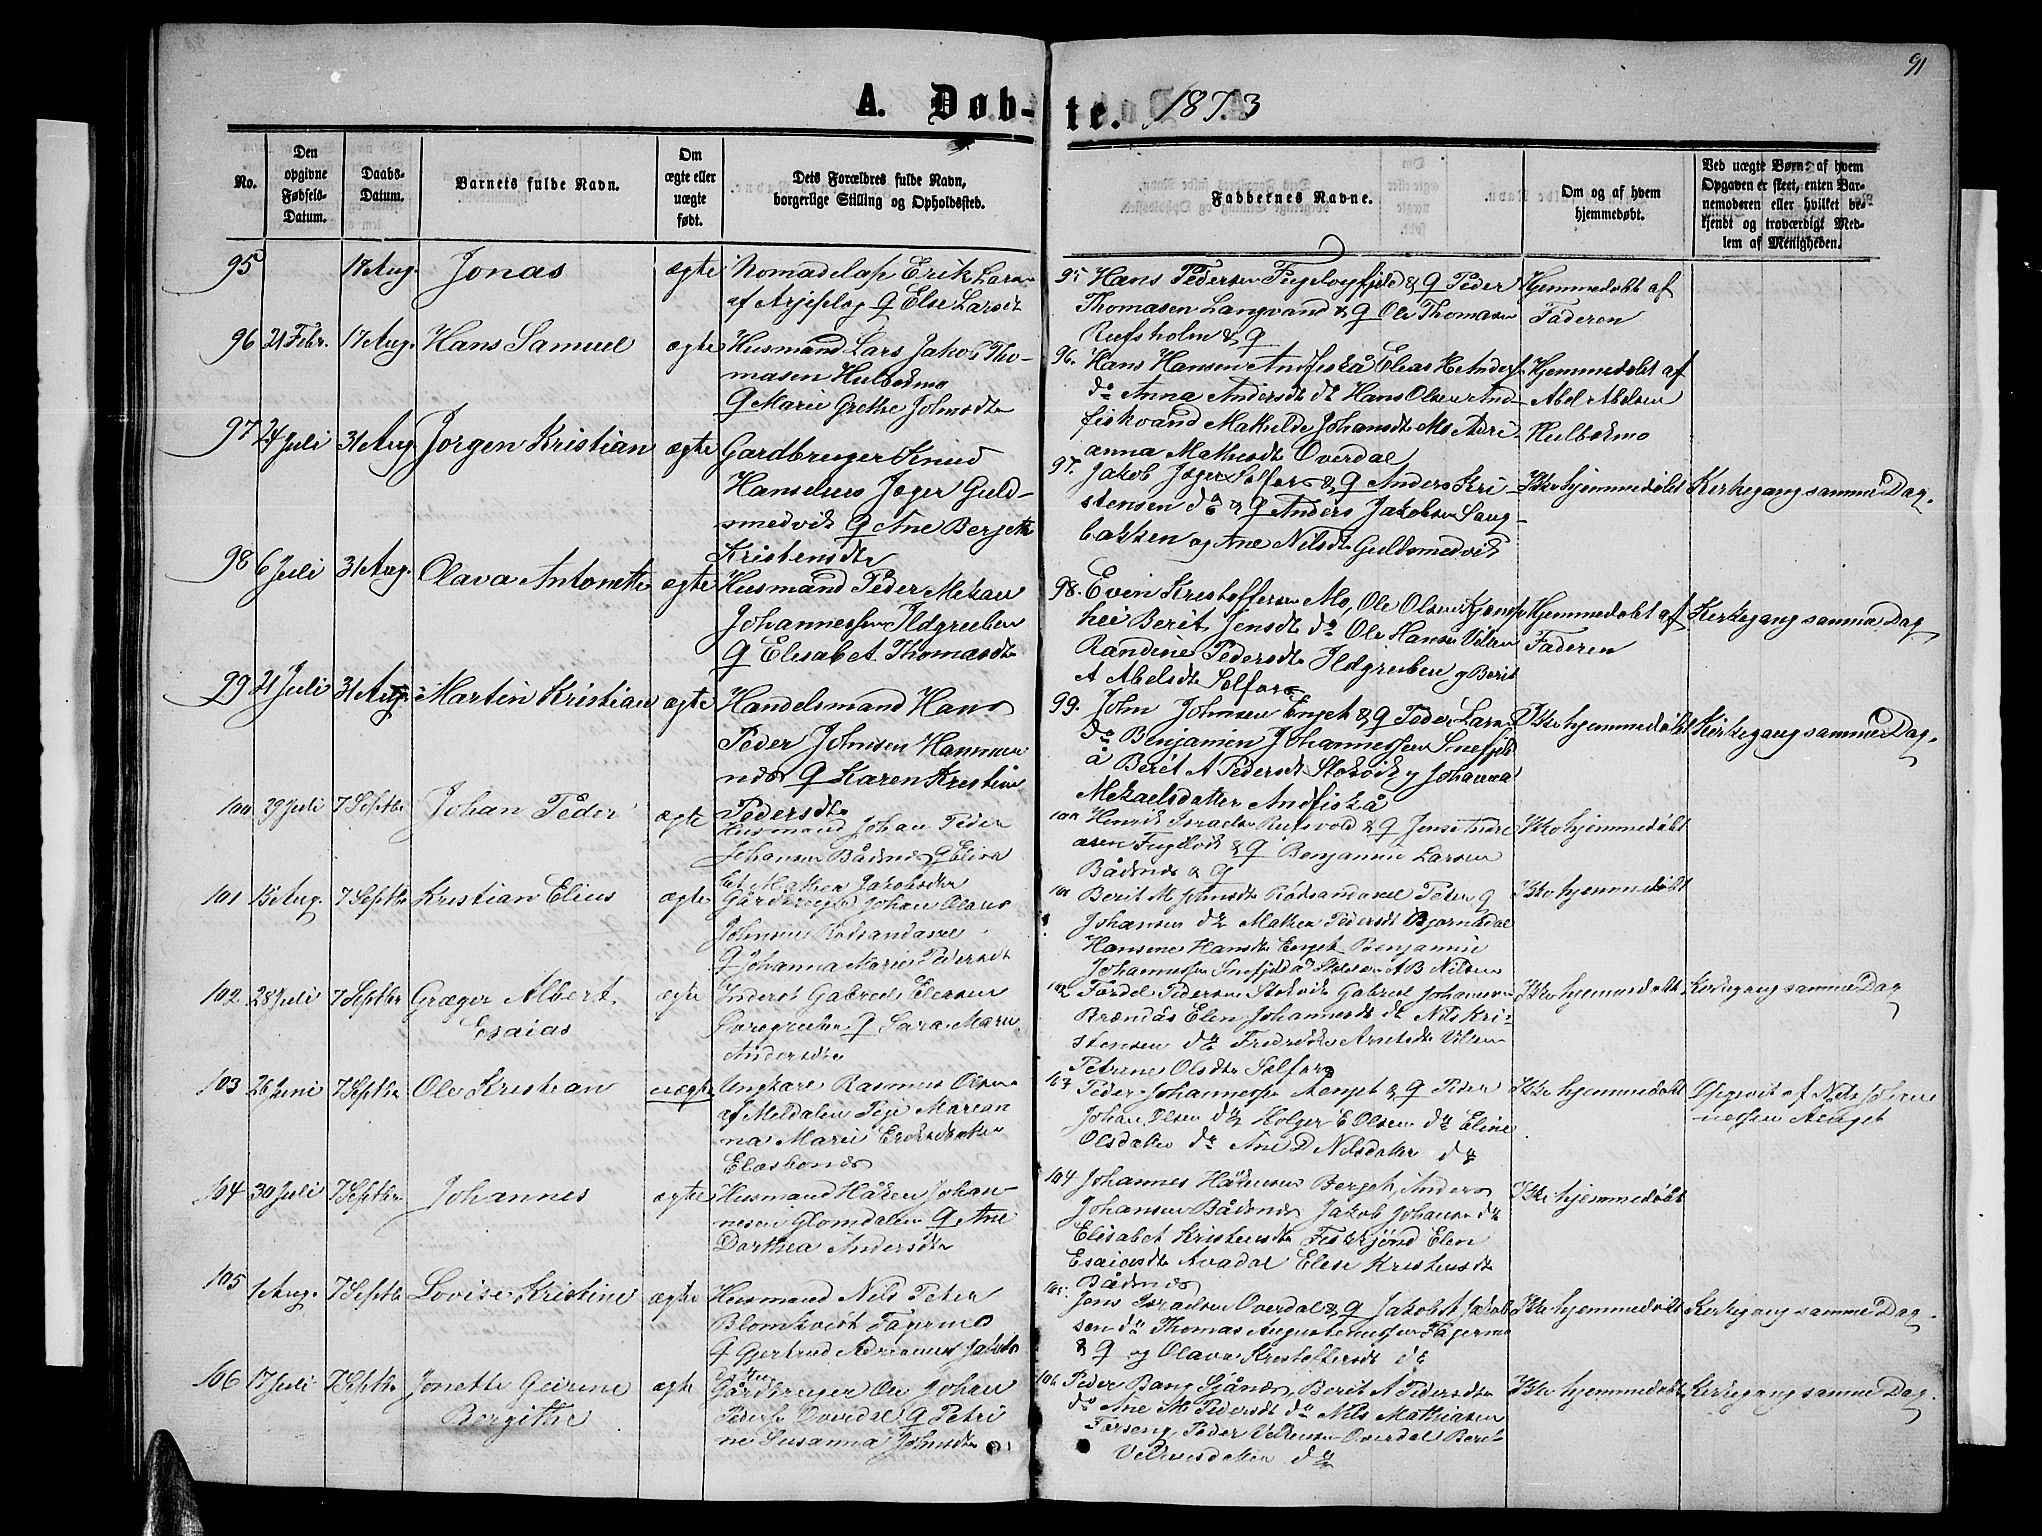 91
A. Døb-te. 1873
No.
Den opgivne Fødsels-Datum.
Daabs-Datum.
Barnets fulde Navn.
Om ægte eller uægte født.
Dets Forældres fulde Navn, borgerlige Stilling og Opholdssted.
Faddernes Navne.
Om og af hvem hjemmedøbt.
Ved uægte Børn: af hvem Opgaven er skeet, enten Barnemoderen eller hvilket bekjendt og troværdigt Medlem af Menigheden.
95 17 Aug. Jonas ægte Nomadelap Erik Lars
af Arjeplog & Else Larsdt
95 Hans Pedersen Fugelvogfjeld & Q Peder
Thomasen Langvand & Q Ole Thomasen
Rufsholm & Q
Hjemmedøbt af
Faderen
96 21 Febr. 17 Aug. Hans Samuel ægte Husmand Lars Jakob Tho-
masen Hulbekmo
Q Marie Grethe Johnsdtr
96. Hans Hansen Andfiskå Elias H Andf
do Anna Andersdt do Hans Olsen And-
fiskvand Mathilde Johansdtr Mo Adri-
anna Mathisdt Overdal
Hjemmedøbt af
Abel Abelsen
Hulbekmo
97 24 Juli 31 Aug. Jorgen Kristian ægte Gardbruger Knud
Hanselius Jæger Guld-
smedvik Q Ane Bergethe
Kristensdtr
97. Jakob Jæger Selfors & Q Anders Kri-
stensen do & Q Anders Jakobsen Lang-
bakken og Ane Nilsdt Guldsmedvik
Ikke hjemmedøbt Kirkegang samme Dag.
98 6 Juli 31 Aug. Olava Antonette ægte Husmand Peder Mekal
Johannessen Ildgruben
Q Elesabet Thomasdtr
98. Even Kristoffersen Mo, Ole Olsen
hei Berit Jensdtr do Ole Hansen Vilen
Randine Pedersdtr Ildgruben & Berit
A Abelsdt Selfors
Hjemmedøbt af
Faderen
Kirkegang samme Dag
99 21 Juli 31 Aug. Martin Kristian ægte Handelsmand Hans
Peder Johnsen Hammer
næs Q Karen Kristine
Pedersdtr
99. John Johnsen Enget & Q Peder Larsen
do Benjamin Johannessen Snefjeld
å Berit A Pedersdt Stokvik & Johanna
Mekaelsdatter Andfiskå
Ikke hjemmedøbt Kirkegang samme Dag.
100 29 Juli 7 Septbr Johan Peder ægte Husmand Johan Peder
Johansen Bådsnes Q Elisa
bet Mathea Jakobsdtr
100 Henrik Israelsen Rufsvold & Q Jens Andre
asen Fuglvik & Q Benjamin Larsen
Bådsnes & Q
Ikke hjemmedøbt
101 15 Aug. 7 Septbr Kristian Elius ægte Gårdbruger Johan Olaus
Johnsen Rødsandaxel
Q Johanna Marie Pedersdt
101 Berit M Johnsdtr Rødsandaxel Peter Q
Johansen do Mathea Pedersdt Bjørnådal
Hansine Hansdtr Enget Benjamin
Johannessen Snefjeldå A B Nilsen
Ikke hjemmedøbt
102 28 Juli 7 Septbr Græger Albert
Esaias
ægte Inderst Gabriel Eliesen
Q Sara Marie
Andersdtr
102 Fordel Pedersen Stokvik Gabriel Johansen
Brændås Elen Johannesdt do Nils Kri-
stensen do Fredrikke Arntsdt Vilen
Petrine Olsdtr Selfors
Ikke hjemmedøbt Kirkegang samme Dag
103 26 Juni 7 Septbr Ole Kristian uægte Ungkarl Rasmus Olsen
af Meldalen Pige Marian
na Marie Eriksdatter
103 Peder Johannessen Aenget & Q Peder
Johan Olsen do Holger E Olsen do Eline
Olsdatter do Ane D Nilsdatter do
Ikke hjemmedøbt Opgivet af Nils Johan
nessen Aenget
104 30 Juli 7 Septbr Johannes ægte Husmand Håken Johan-
nesen Glomdalen Q Ane
Dorthea Andersdtr
104 Johannes Håkensen Berget, Anders
Johansen Bådsnes Jakob Johansen do
Elisabet Kristensdtr Fiskjønd Elen
Esaiasdtr Avadal Elese Kristensdtr
Bådsnes
Ikke hjemmedøbt
105 1 Aug. 7 Septbr Lovise Kristine ægte Husmand Nils Peter
Blomkvist Fagermo
& Gjertrud Adrianna Jakobs
datter
105. Jens Israelsen Overdal & Q Jakob A Jakob
sen do Thomas Augustinussen Fagermo
& Q og Olava Kristoffersdt do
Ikke hjemmedøbt Kirkegang samme Dag.
106 17 Juli 7 Septbr Jonette Geirine
Bergithe
ægte Gårdbruger Ole Johan
Peders Overdal Q Petri
ne Susanna Johnsdtr
106 Peder Bang Sjånes, Berit A Pedersdtr
do Ane M Pedersdt do Nils Mathiasen
Forseng Peder Overdal Berit
do
Ikke hjemmedøbt Kirkegang samme Dag.